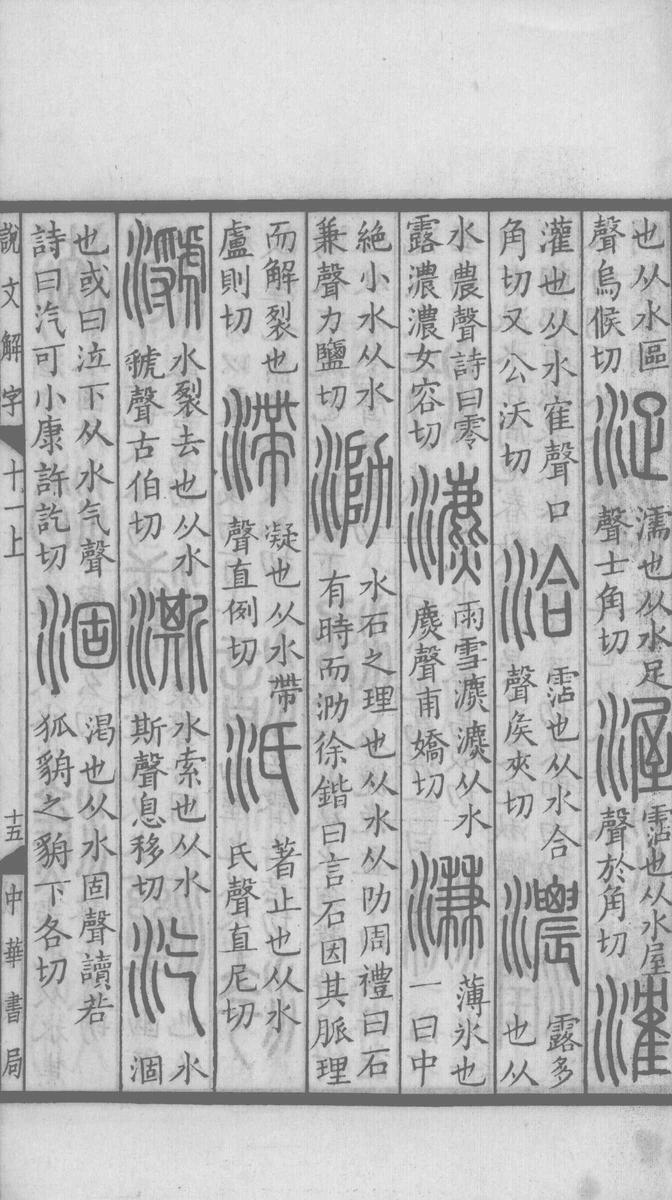 也从水區
聲烏候切
浞
濡也从水足
聲士角切
渥
霑也从水屋
聲於角切
㴶
灌也从水寉聲口
角切又公沃切
洽
霑也从水合
聲矦夾切
濃
露多
也从
水農聲詩曰零
露濃濃女容切
瀌
雨雪瀌瀌从水
麃聲甫嬌切
溓
薄氷也
一曰中
絕小水从水
兼聲力鹽切
泐
水石之理也从水从阞周禮曰石
有時而泐徐鍇曰言石因其脈理
而解裂也
盧則切
滯
凝也从水帶
聲直例切
汦
著止也从水
氏聲直尼切
㶁
水裂去也从水
虢聲古伯切
澌
水索也从水
斯聲息移切
汽
水
涸
也或曰泣下从水气聲
詩曰汽可小康許訖切
涸
渴也从水固聲讀若
狐貈之貈下各切
說文解字 十一上 十五 中華書局